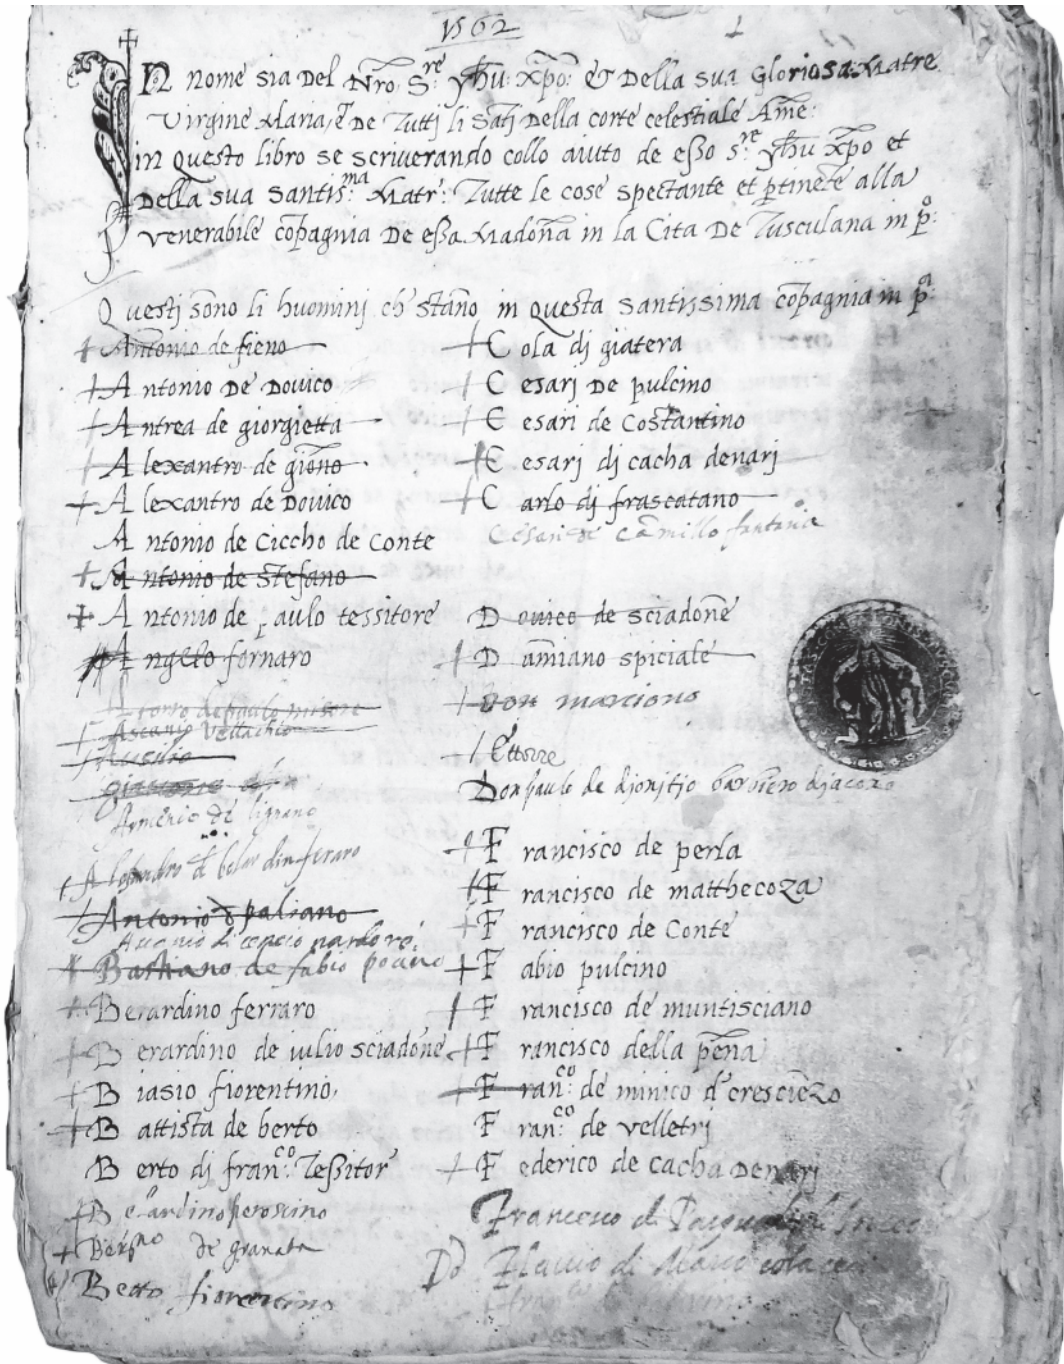 1562
1
In nome sia Del Nrõ S.re yhũ: xp̃o: & Della sua Gloriosa Matre
Virgine Maria, & De Tuttj li Satj Della corte celestiale Ame:
in Questo libro se scriverando collo aiuto de esso s.re yhũ xp̃o et
Della sua santis.ma Matr: Tutte le cose spectante et ptinẽte alla
venerabile cõpagnia De essa Madoña in la Cita De Tusculana in p.o:
Questj sõno li huominj ch stãno in Questa santissima cõpagnia in p.a:
Antonio de fieno
Antonio De Dovico
Antrea de giorgietta
Alexantro de gioño
Alexantro de Dovico
Antonio de Ciccho de Conte
Antonio de Stefano
Antonio de paulo tessitore
Angelo fornaro
Ascanio
Antonio d paliano
Bastiano de fabio
Berardino ferraro
Berardino de iulio sciadoñe
Biasio fiorentino
Battista de berto
Berto dj fran.co: Tessitor
Berardino
Ber.no de granata
Betto fiorentino
Cola dj giatera
Cesarj De pulcino
Cesari de Costantino
Cesarj dj cacha denarj
Carlo dj frascatano
Cesari de Camillo fantania
Dovico de sciadoñe
Damiano spiciale
Don marciono
Ettorre
Don paulo de djonitjo barbiero
Francisco de perla
Francisco de matthecoza
Francisco de Conte
Fabio pulcino
Francisco de muntisciano
Francisco della peña
Fran.co: de minico d cresciẽzo
Fran.co: de velletrj
Federico de cacha Denarj
Francesco d.
Flavio di